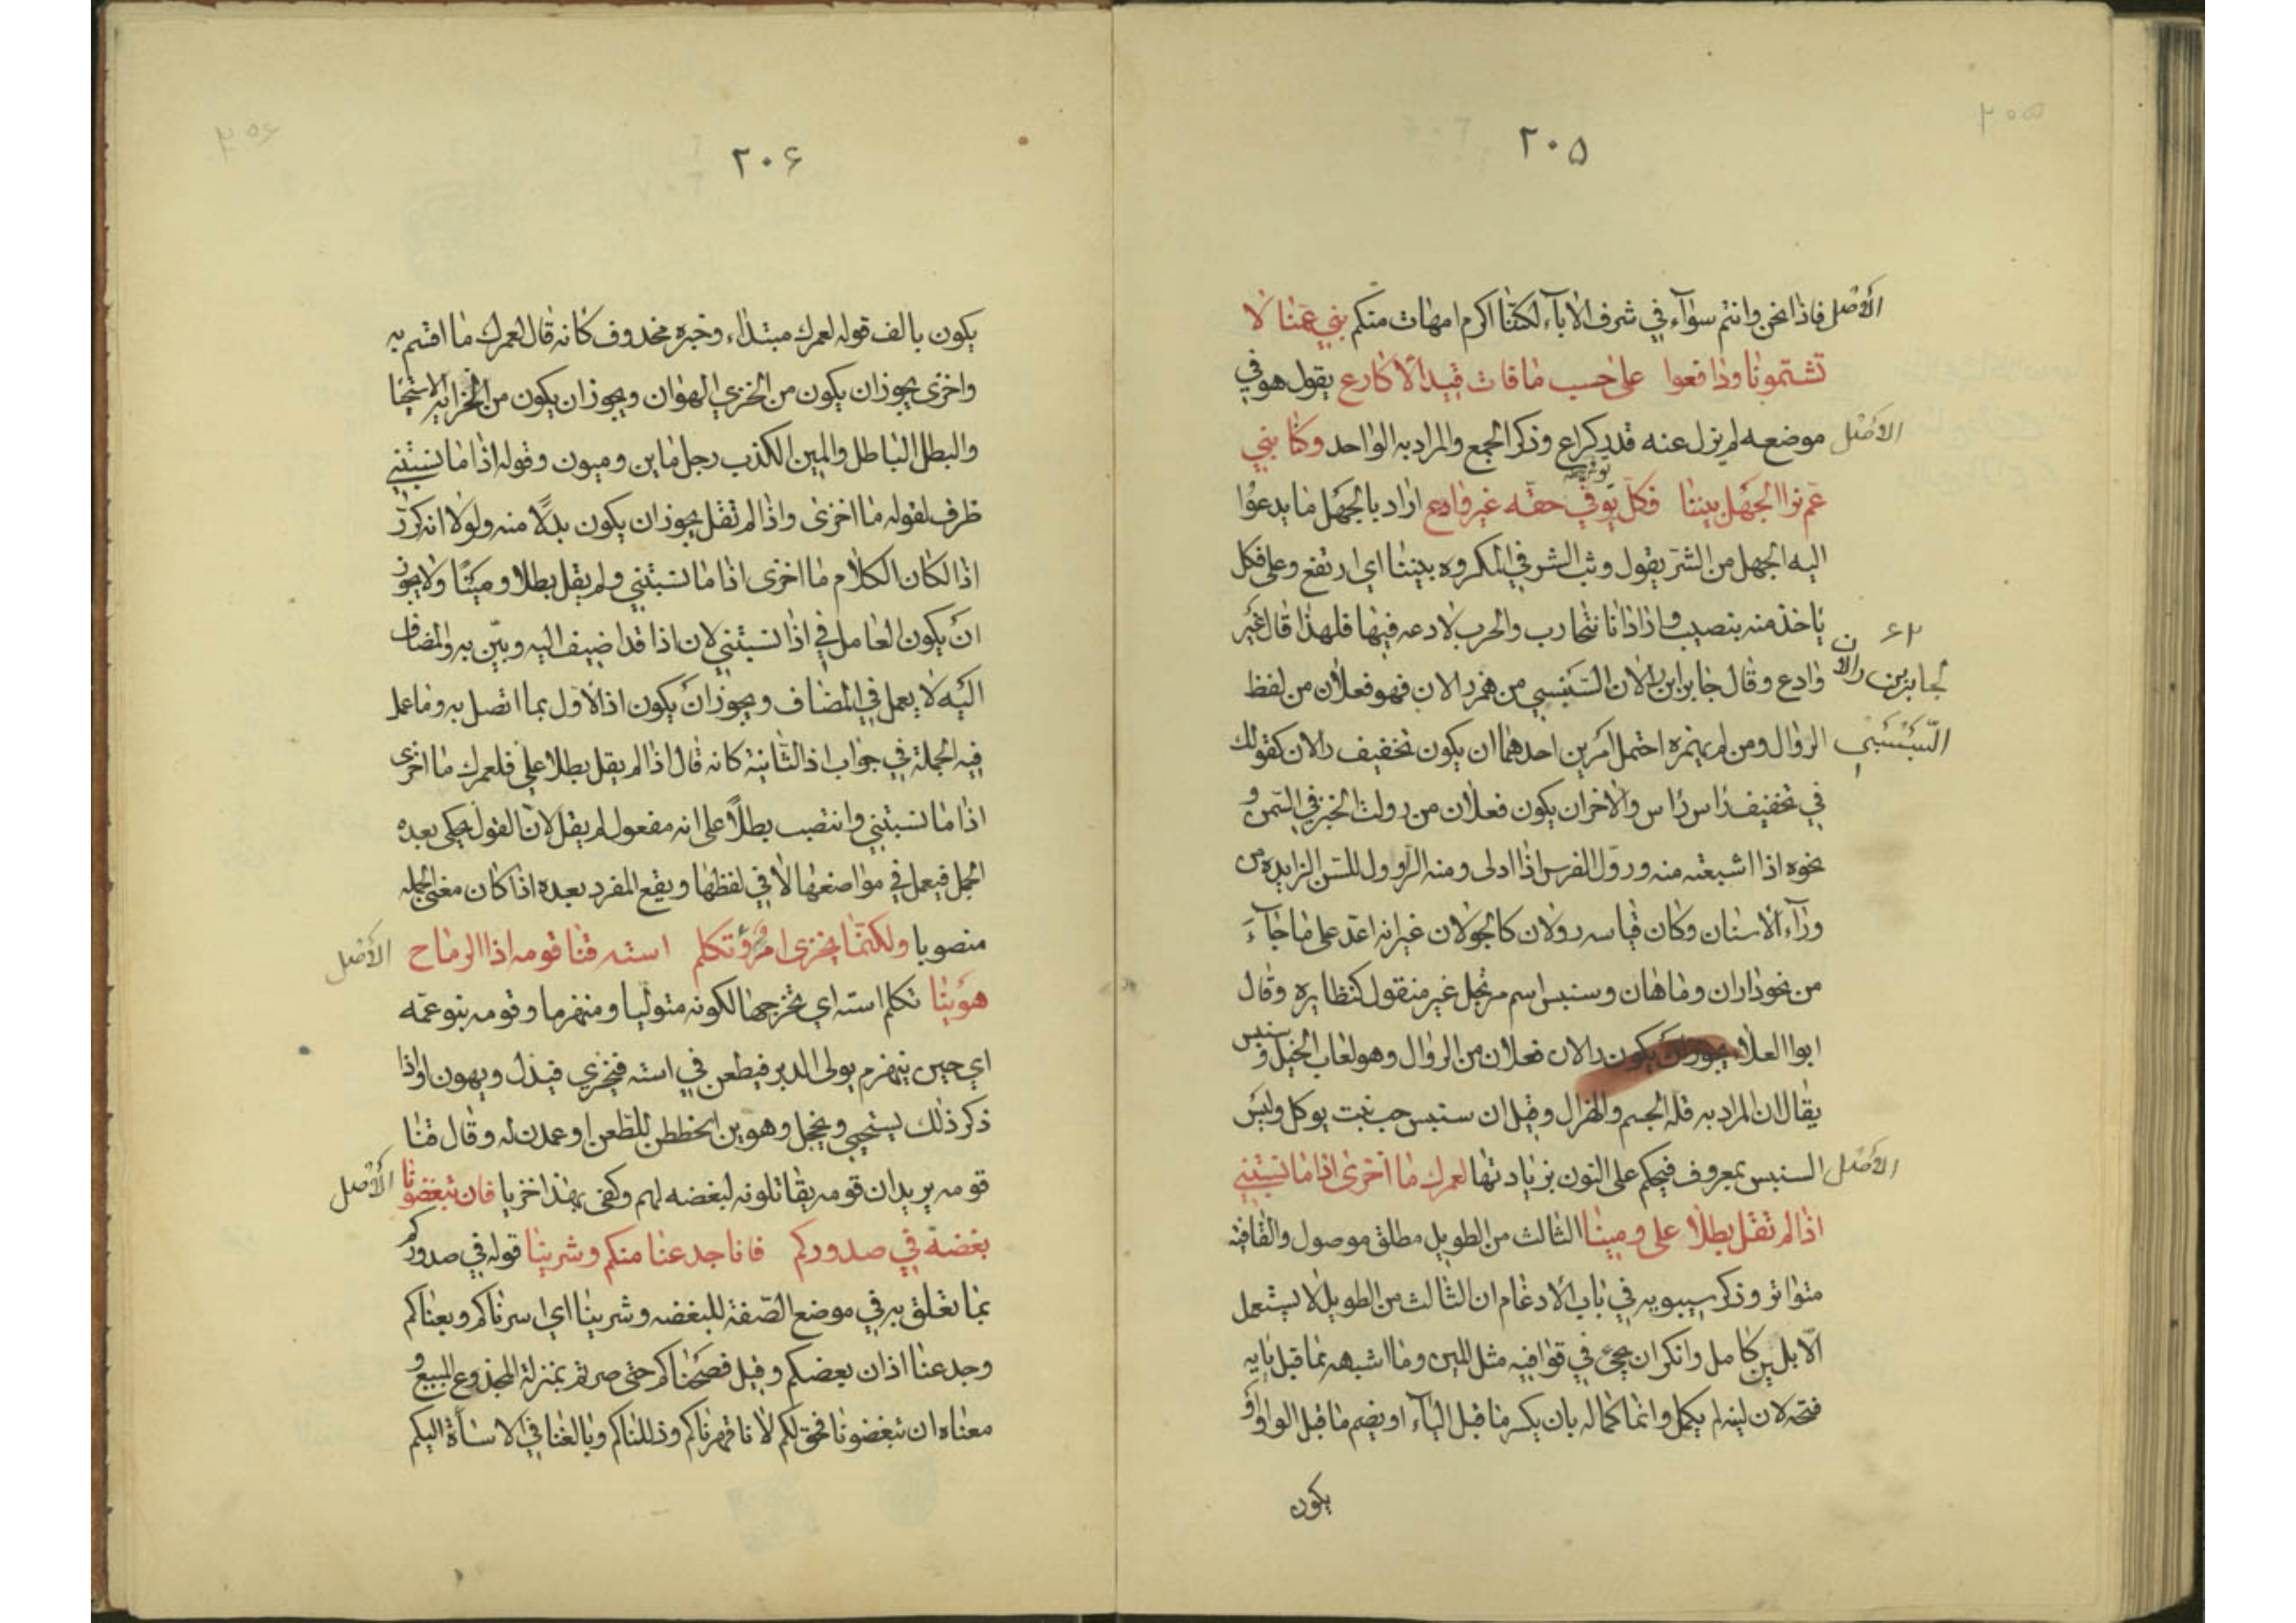 ٢٠٥
الأصل فاذا نحن وانتم سوآء في شرف الاباء لكننا اكرم امهات منكم بني عمنا لا
تشتمونا ودافعوا على حسب ما فات قيد الاكارع يقول هو في
الاصل موضعه لم يزل عنه قدر كراع وذكر الجمع والمراد به الواحد وكنا بني
عم نزا الجهل بيننا فكل يوفي حقه غير وادع اراد بالجهل ما يدعوا
اليه الجهل من الشر يقول وثب الشر في المكروه بيننا اي ارتفع وعلى فكل
ياخذ منه بنصيب واذا اذانا نتحارب والحرب لا دعه فيها فلهذا قال غير
٦٢
جابر بن رالان
وادع وقال جابر ابن رالان السنبسي من همز رالان فهو فعلان من لفظ
السنبسي الروال ومن لم يهمزه احتمل امرين احدهما ان يكون تخفيف رالان كقولك
في تخفيف راس راس والاخر ان يكون فعلان من رولت الخبز في السمن و
نحوه اذا اشبعته منه ورول الفرس اذا ادلى ومنه الروول للسن الزايده من
ورآء الاسنان وكان قياسه رولان كالجولان غير انه اعل على ما جآء
من نحو داران وماهان وسنبس اسم مرتجل غير منقول كنظايره وقال
ابوا العلا يجوز ان يكون رالان فعلان من الروال وهو لعاب الخيل و سنبس
يقال ان المراد به قلة الجسم والهزال وقيل ان سنبس حب نبت يوكل وليس
الاصل السنبس بمعروف فيحكم على النون بزيادتها لعمرك ما اخزى اذا ما نسبتني
اذا لم تقل بطلا على ومينا الثالث من الطويل مطلق موصول والقافية
متواتر وذكر سيبويه في باب الادغام ان الثالث من الطويل لا يستعمل
الا بلين كامل وانكر ان يجئ في قوافيه مثل المين وما اشبهه مما قبل يايه
فتحه لان لينه لم يكمل وانما كماله بان يكسر ما قبل الياء او يضم ما قبل الواو او
يكون
٢٠٦
يكون بالف قوله لعمرك مبتداء وخبره محذوف كانه قال لعمرك ما اقسم به
واخزى يجوز ان يكون من الخزي الهوان ويجوز ان يكون من الخزاية الاستحيا
والبطل الباطل والمين الكذب رجل ماين وميون وقوله اذا ما نسبتني
ظرف لقوله ما اخزى واذا لم تقل يجوز ان يكون بدلا منه ولولا انه كرر
اذا لكان الكلام ما اخزى اذا ما نسبتني ولم يقل بطلا ومينا ولا يجوز
ان يكون العامل في اذا نسبتني لان اذا قد اضيف اليه وبين به والمضاف
اليه لا يعمل في المضاف ويجوز ان يكون اذ الاول بما اتصل به وما عمل
فيه الجملة في جواب اذ الثانية كانه قال اذا لم يقل بطلا علي فلعمرك ما اخزى
اذا ما نسبتني وانتصب بطلا على انه مفعول لم يقل لان القول يحكى بعده
الجمل فيعمل في مواضعها لا في لفظها ويقع المفرد بعده اذا كان معنى الجمله
منصوبا ولكنما يخزى امرؤ تكلم استه قنا قومه اذا الرماح الأصل
هوينا تكلم استه اي تخرجها لكونه متوليا ومنهزما وقومه بنو عمه
اي حين ينهزم يولى الدبر فيطعن في استه فيخزي فيذل ويهون او اذا
ذكر ذلك يستحيي ويخجل وهوين انحططن للطعن او عمدن له وقال قنا
قومه يريد ان قومه يقاتلونه لبغضه لهم وكفى بهذا خزيا فان تبغضونا الأصل
بغضة في صدوركم فانا جدعنا منكم وشرينا قوله في صدوركم
بما تعلق به في موضع الصفة للبغضه وشرينا اي اسرناكم وبعناكم
وجدعنا اذان بعضكم وقيل فصحناكم حتى صرتم بمنزلة المجذوع المبيع و
معناه ان تبغضونا فحق لكم لانا قهرناكم وذللناكم وبالغنا في الاساءة اليكم